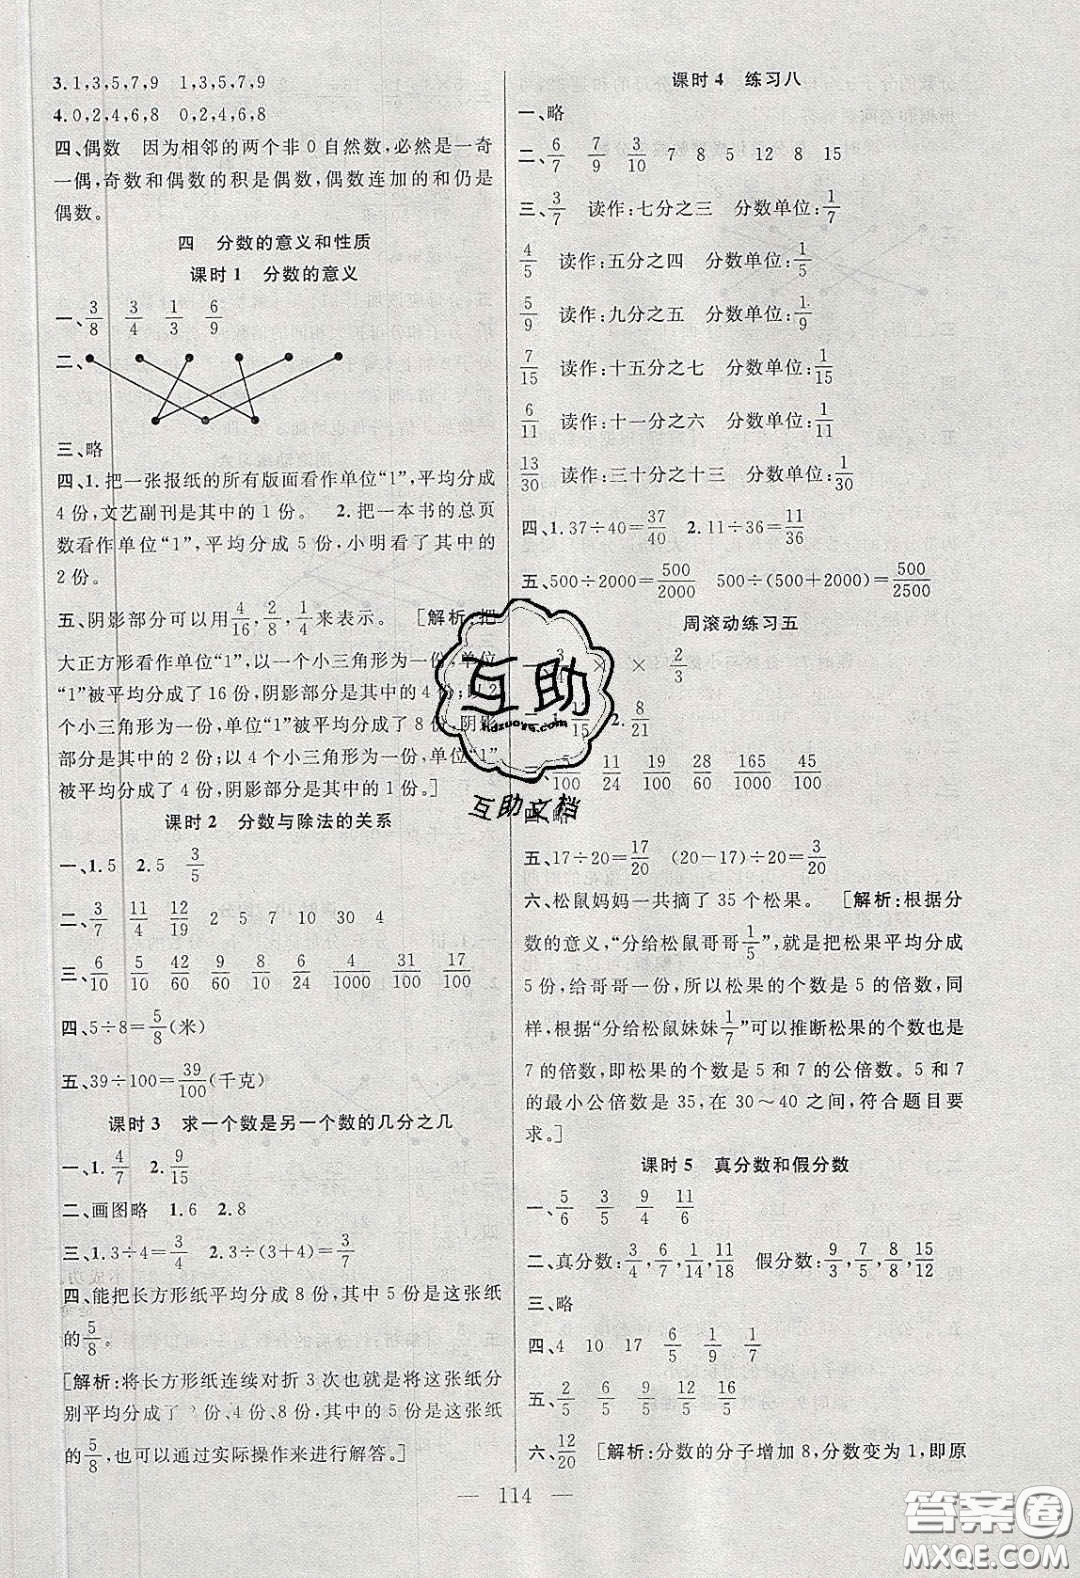 3.1,3,5,7,9 1,3,5,7,9
4.0,2,4,6,8 0,2,4,6,8
四、偶数 因为相邻的两个非0自然数,必然是一奇
一偶,奇数和偶数的积是偶数,偶数连加的和仍是
偶数。
四 分数的意义和性质
课时1 分数的意义
一、3/8 3/4 1/3 6/9
二、
三、略
四、1.把一张报纸的所有版面看作单位“1”,平均分成
4份,文艺副刊是其中的1份。 2.把一本书的总页
数看作单位“1”,平均分成5份,小明看了其中的
2份。
五、阴影部分可以用4/16,2/8,1/4来表示。 [解析:把
大正方形看作单位“1”,以一个小三角形为一份,单位
“1”被平均分成了16份,阴影部分是其中的4份;以2
个小三角形为一份,单位“1”被平均分成了8份,阴影
部分是其中的2份;以4个小三角形为一份,单位“1”
被平均分成了4份,阴影部分是其中的1份。]
课时2 分数与除法的关系
一、1.5 2.5 3/5
二、3/7 11/4 12/19 2 5 7 10 30 4
三、6/10 5/10 42/60 9/60 8/10 6/24 4/1000 31/100 17/100
四、5÷8=5/8(米)
五、39÷100=39/100(千克)
课时3 求一个数是另一个数的几分之几
一、1.4/7 2.9/15
二、画图略 1.6 2.8
三、1.3÷4=3/4 2.3÷(3+4)=3/7
四、能把长方形纸平均分成8份,其中5份是这张纸
的5/8。
[解析:将长方形纸连续对折3次也就是将这张纸分
别平均分成了2份、4份、8份,其中的5份是这张纸
的5/8,也可以通过实际操作来进行解答。]
课时4 练习八
一、略
二、6/7 7/9 3/10 7 8 5 12 8 15
三、3/7 读作:七分之三 分数单位:1/7
4/5 读作:五分之四 分数单位:1/5
5/9 读作:九分之五 分数单位:1/9
7/15 读作:十五分之七 分数单位:1/15
6/11 读作:十一分之六 分数单位:1/11
13/30 读作:三十分之十三 分数单位:1/30
四、1.37÷40=37/40 2.11÷36=11/36
五、500÷2000=500/2000 500÷(500+2000)=500/2500
周滚动练习五
× × 2/3
2.8/21
11/24 19/100 28/60 165/1000 45/100
四、略
五、17÷20=17/20 (20-17)÷20=3/20
六、松鼠妈妈一共摘了35个松果。 [解析:根据分
数的意义,“分给松鼠哥哥1/5”,就是把松果平均分成
5份,给哥哥一份,所以松果的个数是5的倍数,同
样,根据“分给松鼠妹妹1/7”可以推断松果的个数也是
7的倍数,即松果的个数是5和7的公倍数。5和7
的最小公倍数是35,在30～40之间,符合题目要
求。]
课时5 真分数和假分数
一、5/6 3/5 9/4 11/6
二、真分数:3/4,1/6,1/14,11/18 假分数:9/3,7/5,8/8,15/12
三、略
四、4 10 17 6/5 1/9 1/7
五、2/5 6/5 6/5 12/5 16/5
六、12/20 [解析:分数的分子增加8,分数变为1,即原
114
互助
hdzuoye.com
互助文档
答案圈
MXQE.COM